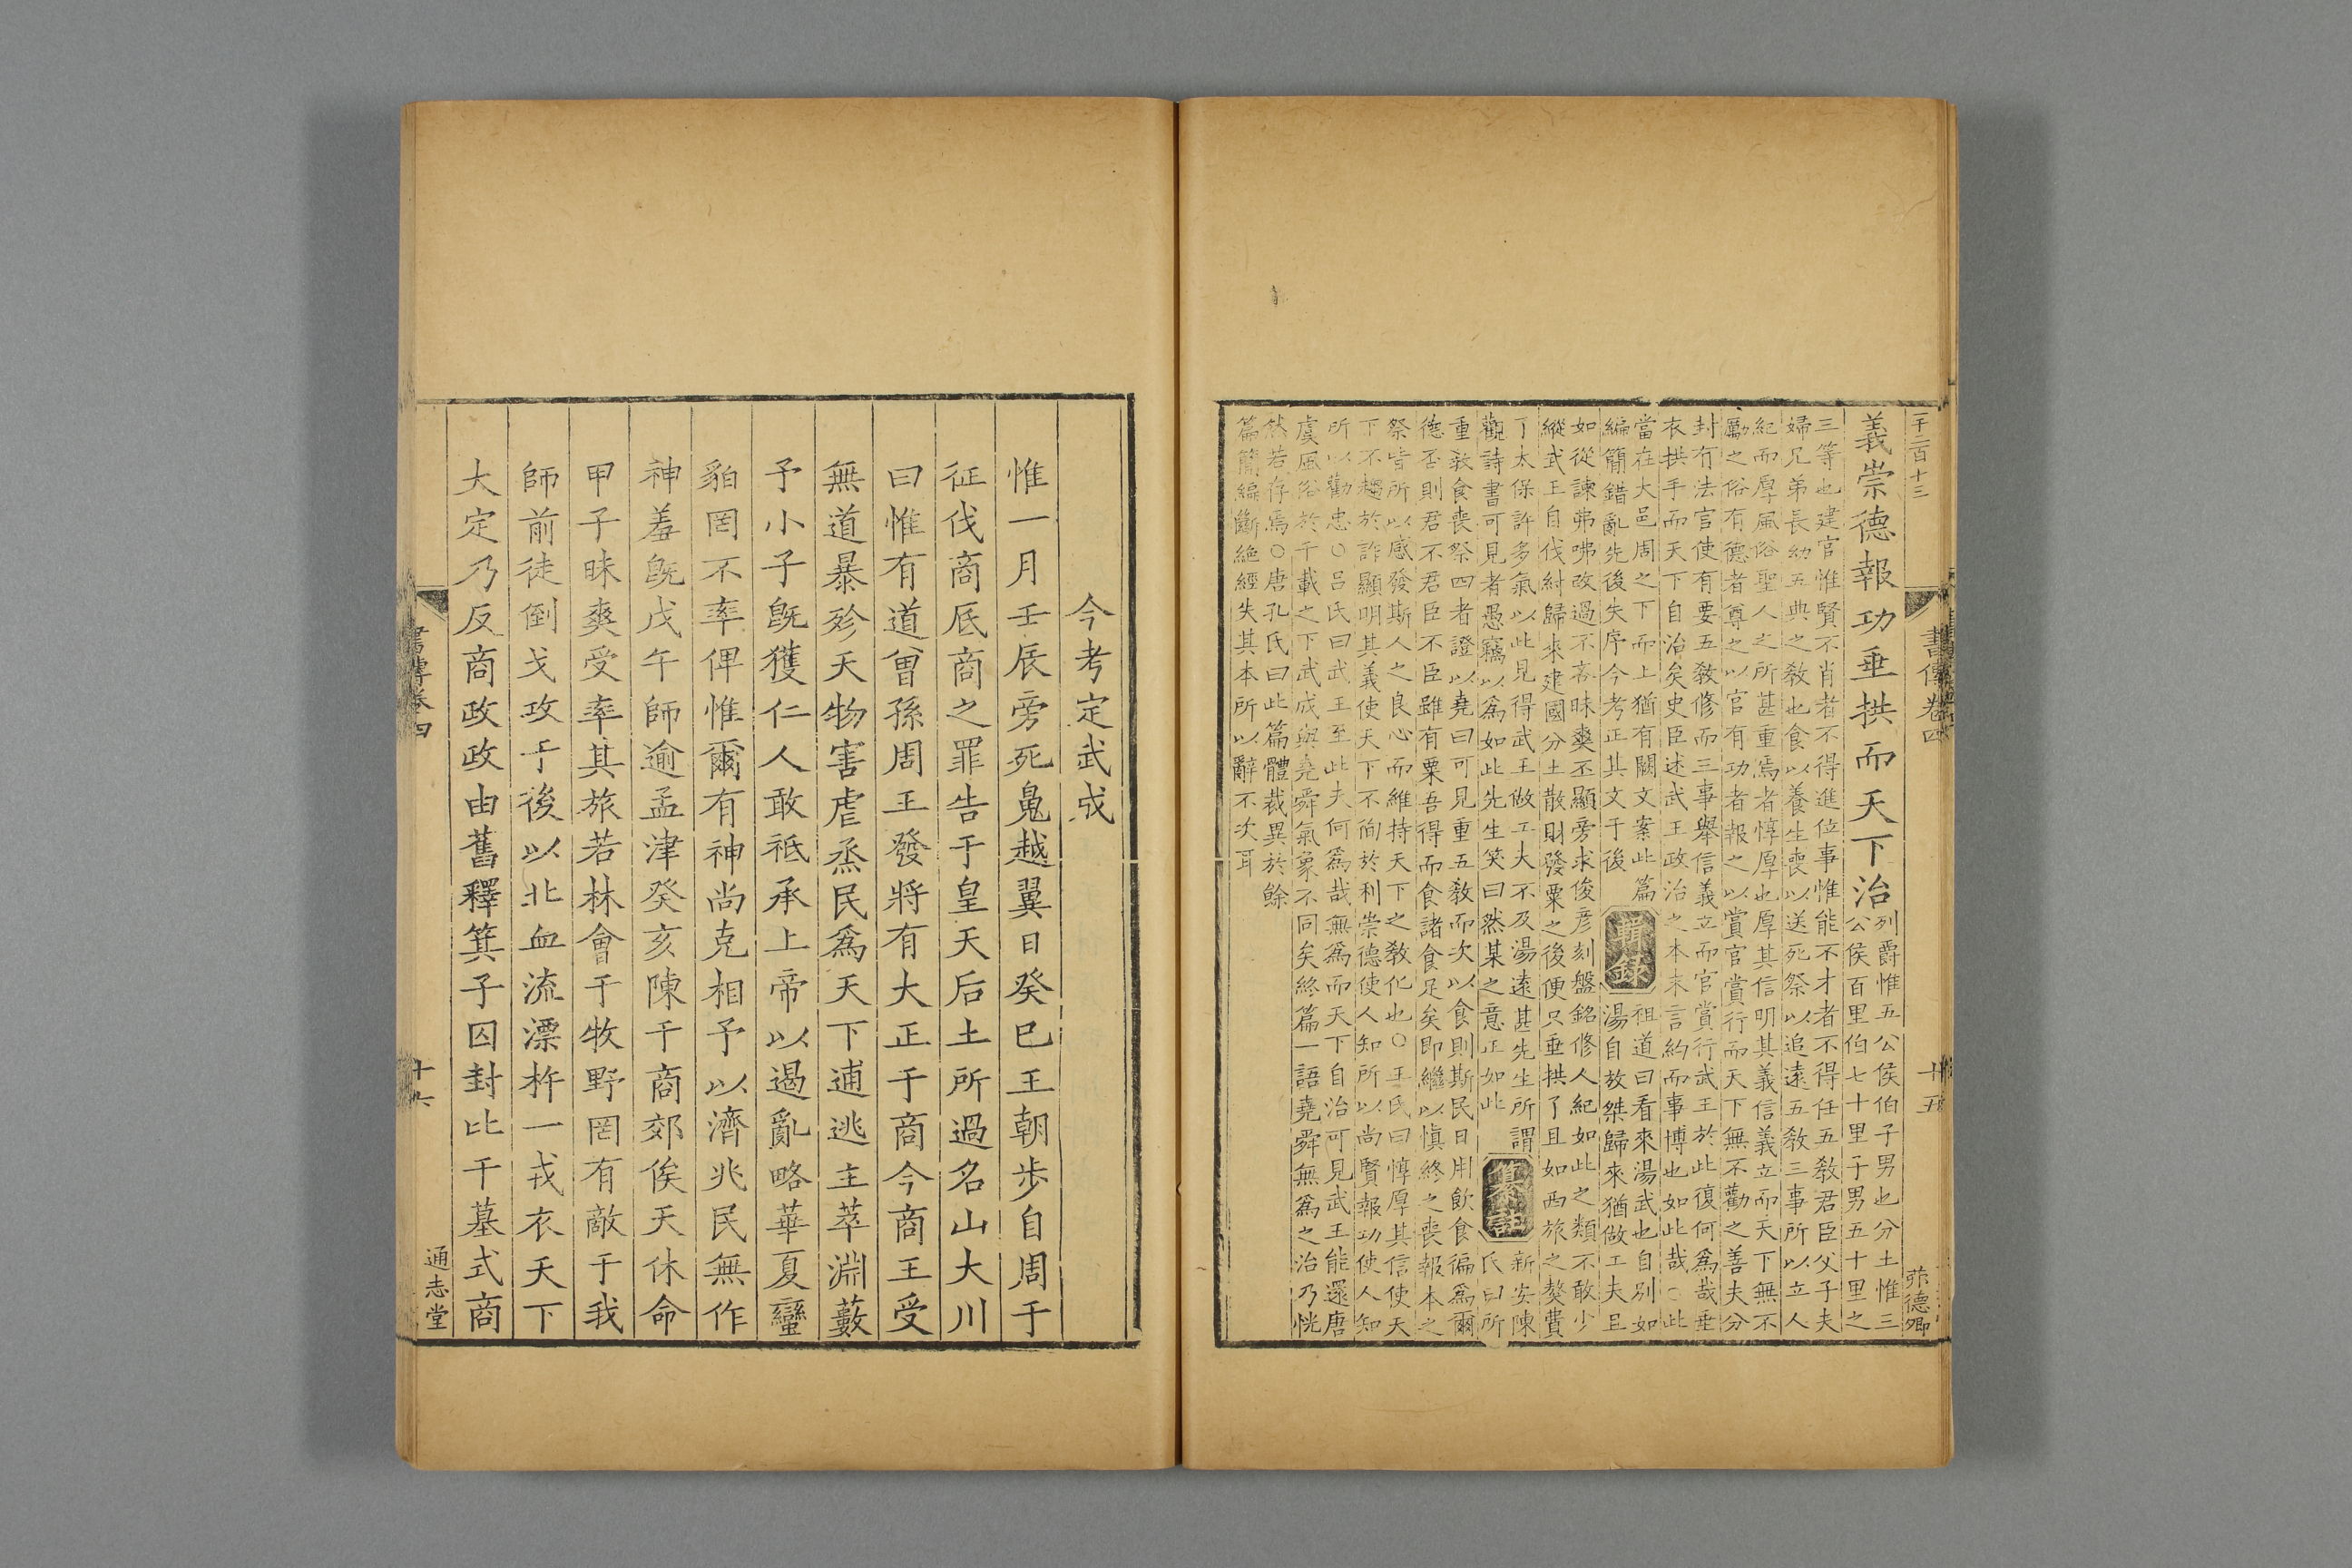 一千二百十三
書傳卷四
十五
德卿
義崇德報功垂拱而天下治
列爵惟五公侯伯子男也分土惟三
公侯百里伯七十里子男五十里之
三等也建官惟賢不肖者不得進位事惟能不才者不得任五敎君臣父子夫
婦兄弟長幼五典之敎也食以養生喪以送死祭以追遠五敎三事所以立人
紀而厚風俗聖人之所甚重焉者惇厚也厚其信明其義信義立而天下無不
勵之俗有德者尊之以官有功者報之以賞官賞行而天下無不勸之善夫分
封有法官使有要五敎修而三事舉信義立而官賞行武王於此復何爲哉垂
衣拱手而天下自治矣史臣述武王政治之本末言約而事博也如此哉○此
當在大邑周之下而上猶有闕文案此篇
編簡錯亂先後失序今考正其文于後
輯錄
祖道曰看來湯武也自別如
湯自放桀歸來猶做工夫且
如從諫弗咈改過不吝昧爽丕顯旁求俊彦刻盤銘修人紀如此之類不敢少
縱武王自伐紂歸來建國分土散財發粟之後便只垂拱了且如西旅之獒費
了太保許多氣以此見得武王做工夫不及湯遠甚先生所謂
觀詩書可見者愚竊以爲如此先生笑曰然某之意正如此
纂註
新安陳
氏曰所
重敎食喪祭四者證以堯曰可見重五敎而次以食則斯民日用飲食徧爲爾
德否則君不君臣不臣雖有粟吾得而食諸食足矣即繼以愼終之喪報本之
祭皆所以感發斯人之良心而維持天下之敎化也○王氏曰惇厚其信使天
下不趨於詐顯明其義使天下不徇於利崇德使人知所以尚賢報功使人知
所以勸忠○呂氏曰武王至此夫何爲哉無爲而天下自治可見武王能還唐
虞風俗於千載之下武成與堯舜氣象不同矣終篇一語堯舜無爲之治乃恍
然若存焉○唐孔氏曰此篇體裁異於餘
篇簡編斷絶經失其本所以辭不次耳
今考定武成
惟一月壬辰旁死魄越翼日癸巳王朝步自周于
征伐商厎商之罪告于皇天后土所過名山大川
曰惟有道曾孫周王發將有大正于商今商王受
無道暴殄天物害虐烝民爲天下逋逃主萃淵藪
予小子旣獲仁人敢祗承上帝以遏亂略華夏蠻
貊罔不率俾惟爾有神尚克相予以濟兆民無作
神羞旣戊午師逾孟津癸亥陳于商郊俟天休命
甲子昧爽受率其旅若林會于牧野罔有敵于我
師前徒倒戈攻于後以北血流漂杵一戎衣天下
大定乃反商政政由舊釋箕子囚封比干墓式商
書傳卷四
十六
通志堂